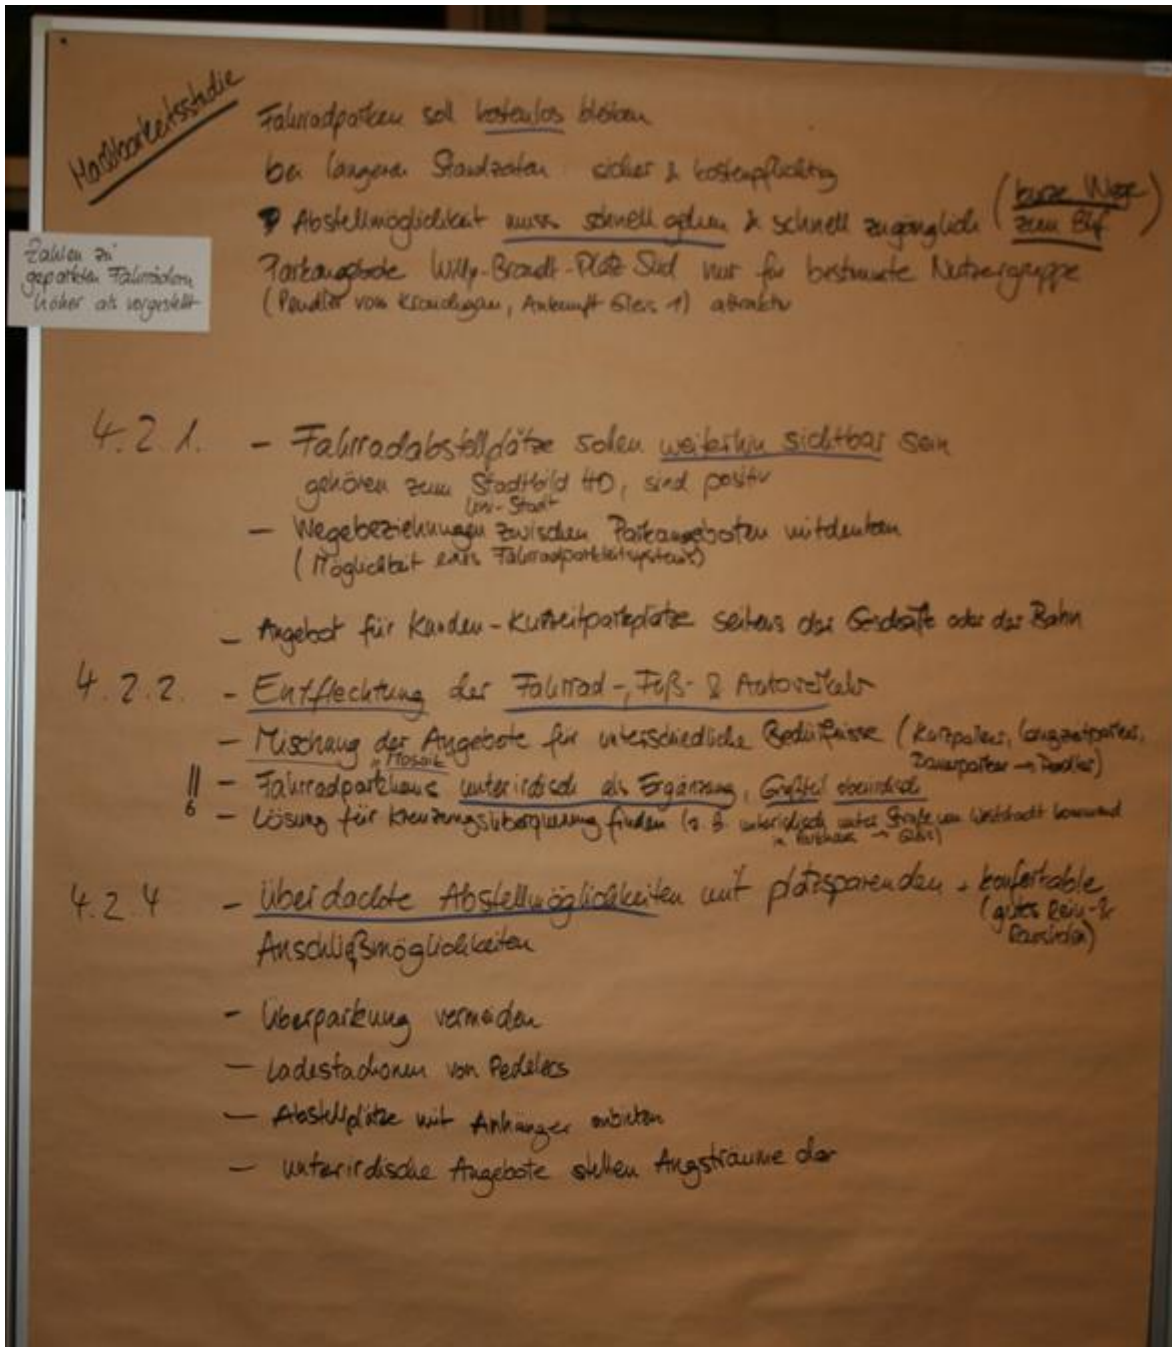 Machbarkeitsstudie
Fahrradparken soll kostenlos bleiben
bei längeren Standzeiten sicher & kostenpflichtig
Abstellmöglichkeit muss schnell gehen & schnell zugänglich (kurze Wege
zum Bhf)
Zahlen zu
geparkten Fahrrädern
höher als vorgestellt
Parkangebote Willy-Brandt-Platz Süd nur für bestimmte Nutzergruppe
(Pendler von Kraichgau, Ankunft Gleis 1) attraktiv
4.2.1. - Fahrradabstellplätze sollen weiterhin sichtbar sein
gehören zum Stadtbild HD, sind positiv
Uni-Stadt
- Wegebeziehungen zwischen Parkangeboten mitdenken
(Möglichkeit eines Fahrradparkleitsystems)
- Angebot für Kunden-Kurzzeitparkplätze seitens der Geschäfte oder der Bahn
4.2.2. - Entflechtung der Fahrrad-, Fuß- & Autoverkehr
- Mischung der Angebote für unterschiedliche Bedürfnisse (Kurzparker, Langzeitparker,
"Mosaik" Dauerparker → Pendler)
- Fahrradparkhaus unterirdisch als Ergänzung, Großteil oberirdisch
6 - Lösung für Kreuzungsüberquerung finden (z.B. unterirdisch unter Straße von Weststadt kommend
in Parkhaus → Gleis)
4.2.4 - Überdachte Abstellmöglichkeiten mit platzsparenden + komfortable
(gutes Rein- &
Anschließmöglichkeiten
- Überparkung vermeiden
- Ladestadionen von Pedelecs
- Abstellplätze mit Anhänger anbieten
- unterirdische Angebote stellen Angsträume dar